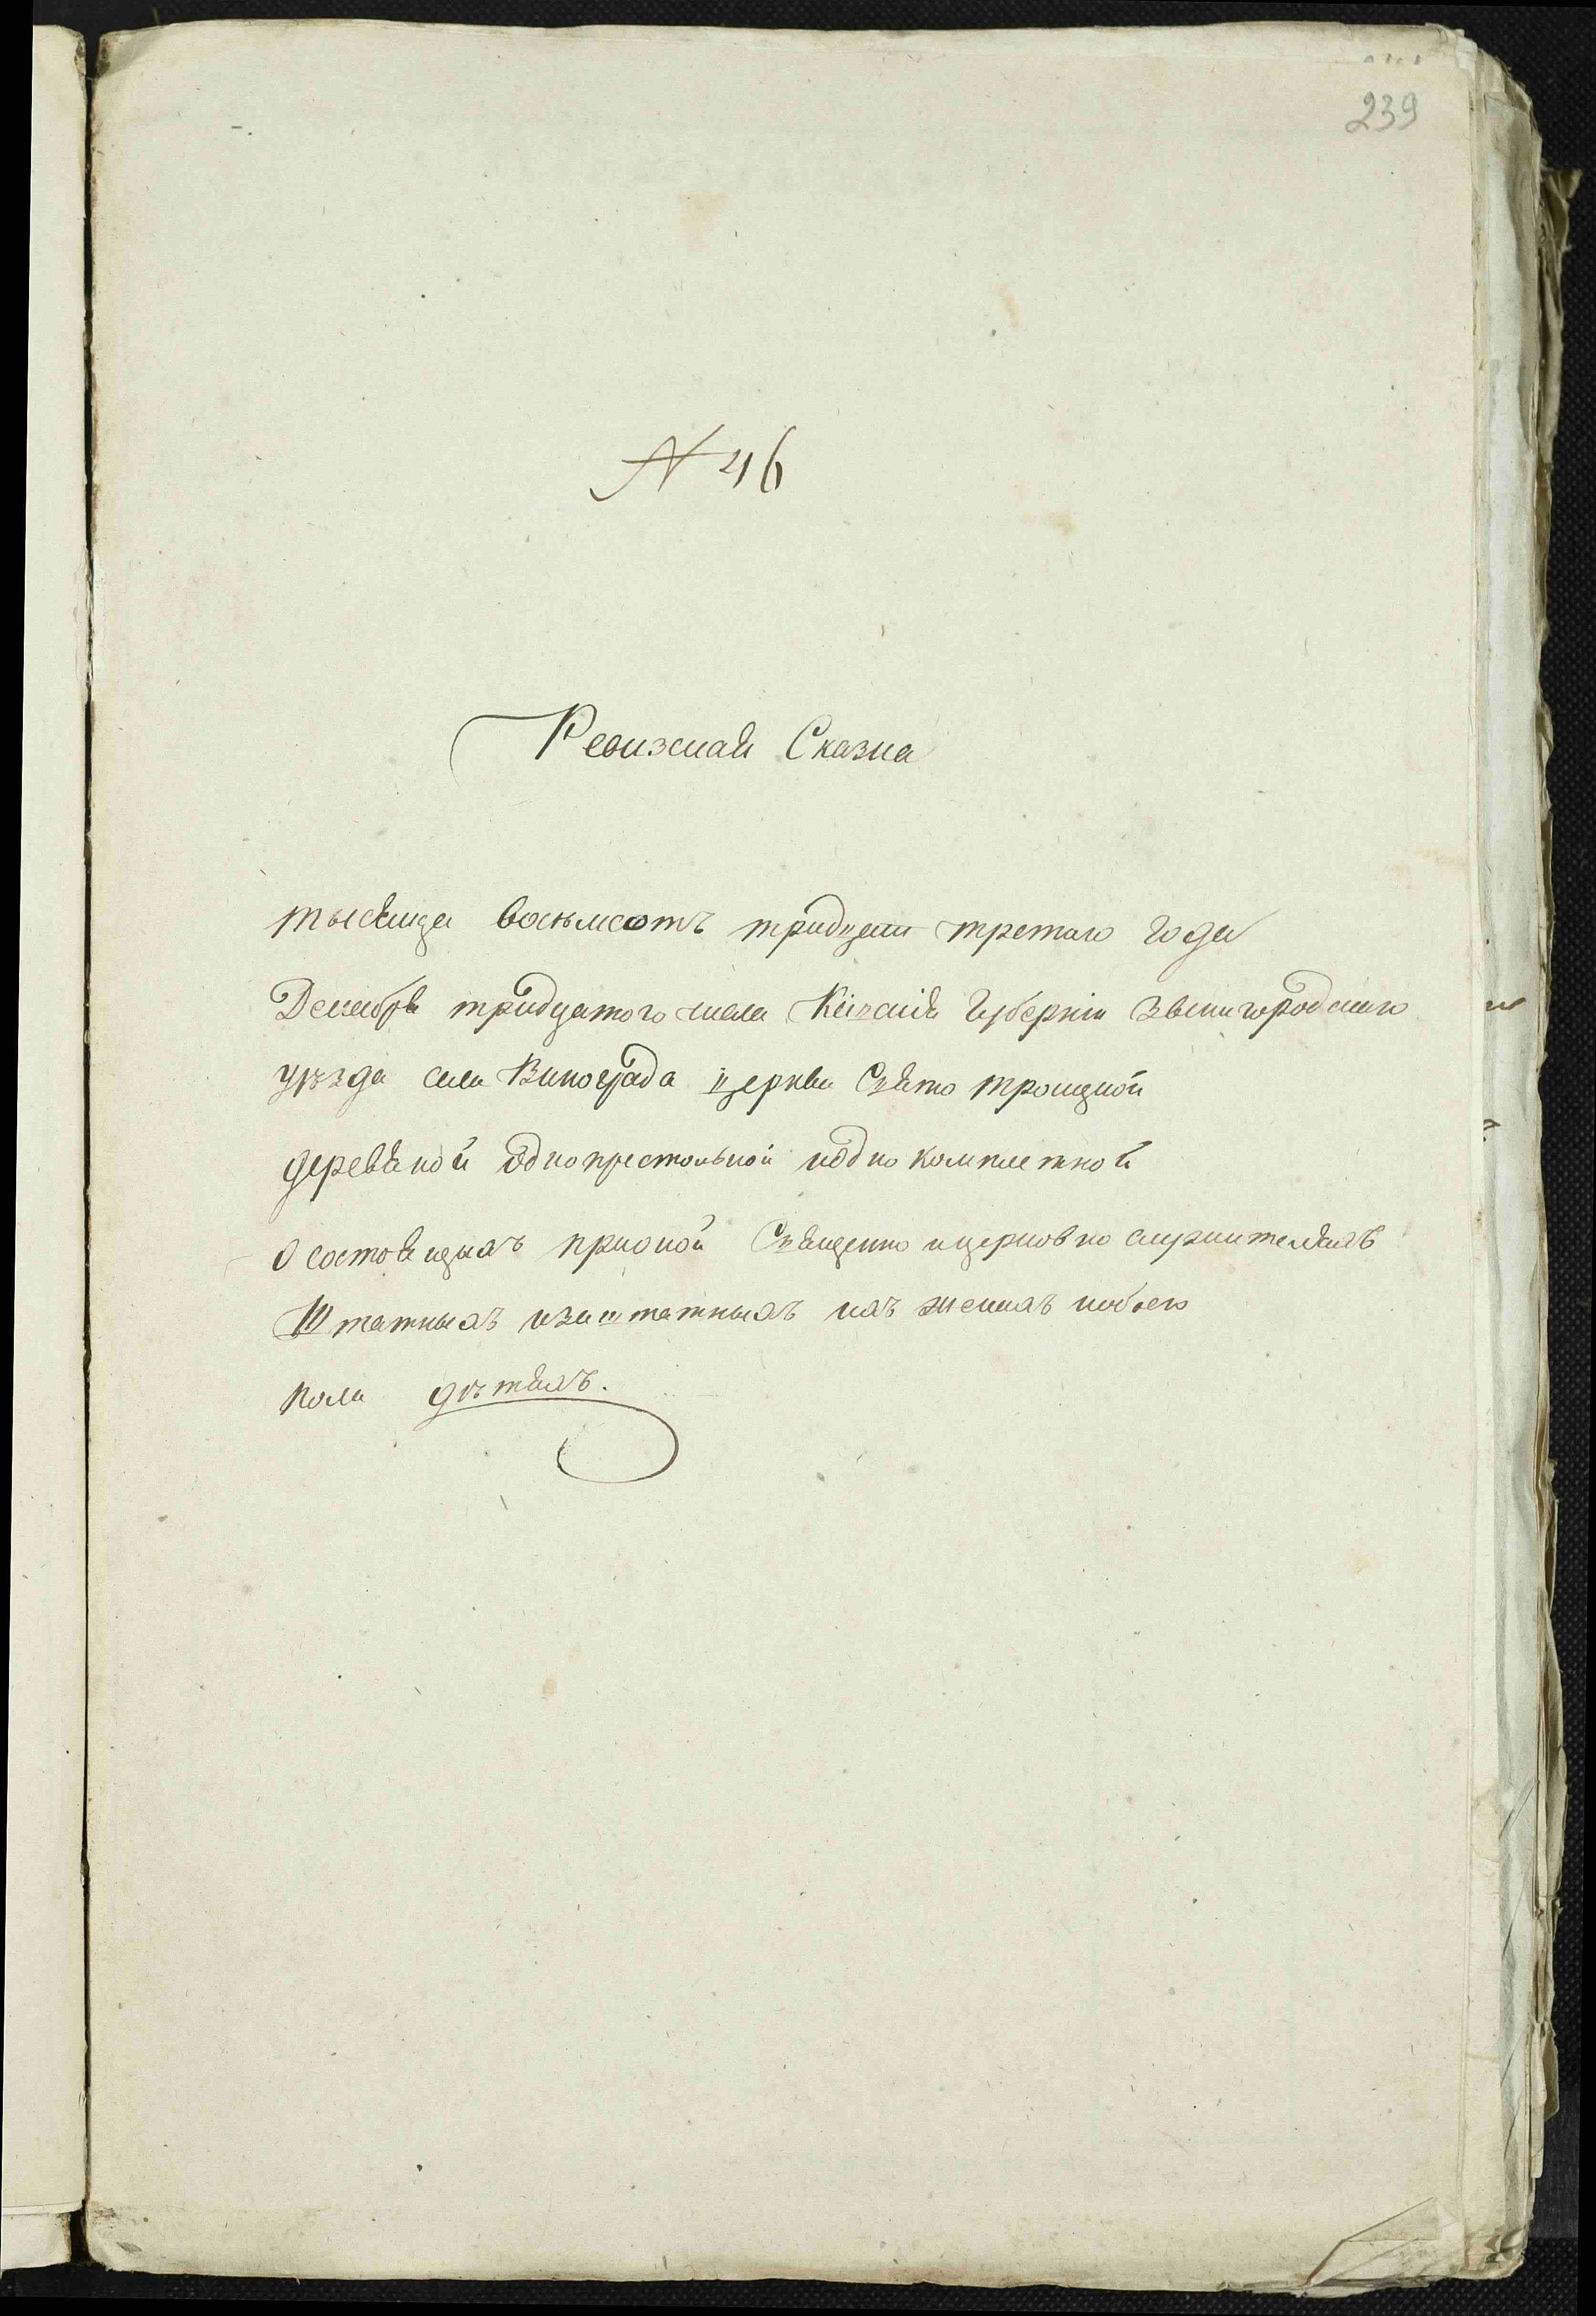 239
N 46
Ревизская Сказка
тысяща восьмсотъ тридцати третьаго года
Декабря тридцатого числа Кіевскія Губерніи Звенигородского
уѣзда села Винограда церкви Свято троицкой
деревяной однопрестольной иоднокомплетной
О состоящихъ прионой Священно ицерковно служителяхъ
Штатныхъ изаштатныхъ ихъ женахъ иобоего
пола дѣтяхъ.